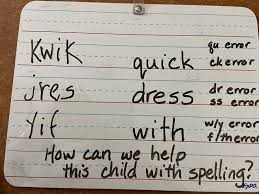 Kwik quick qu error
ck error
jres dress dr error
ss error
Yif with w/y error
f/th error
How can we help
this child with spelling?
EXPO